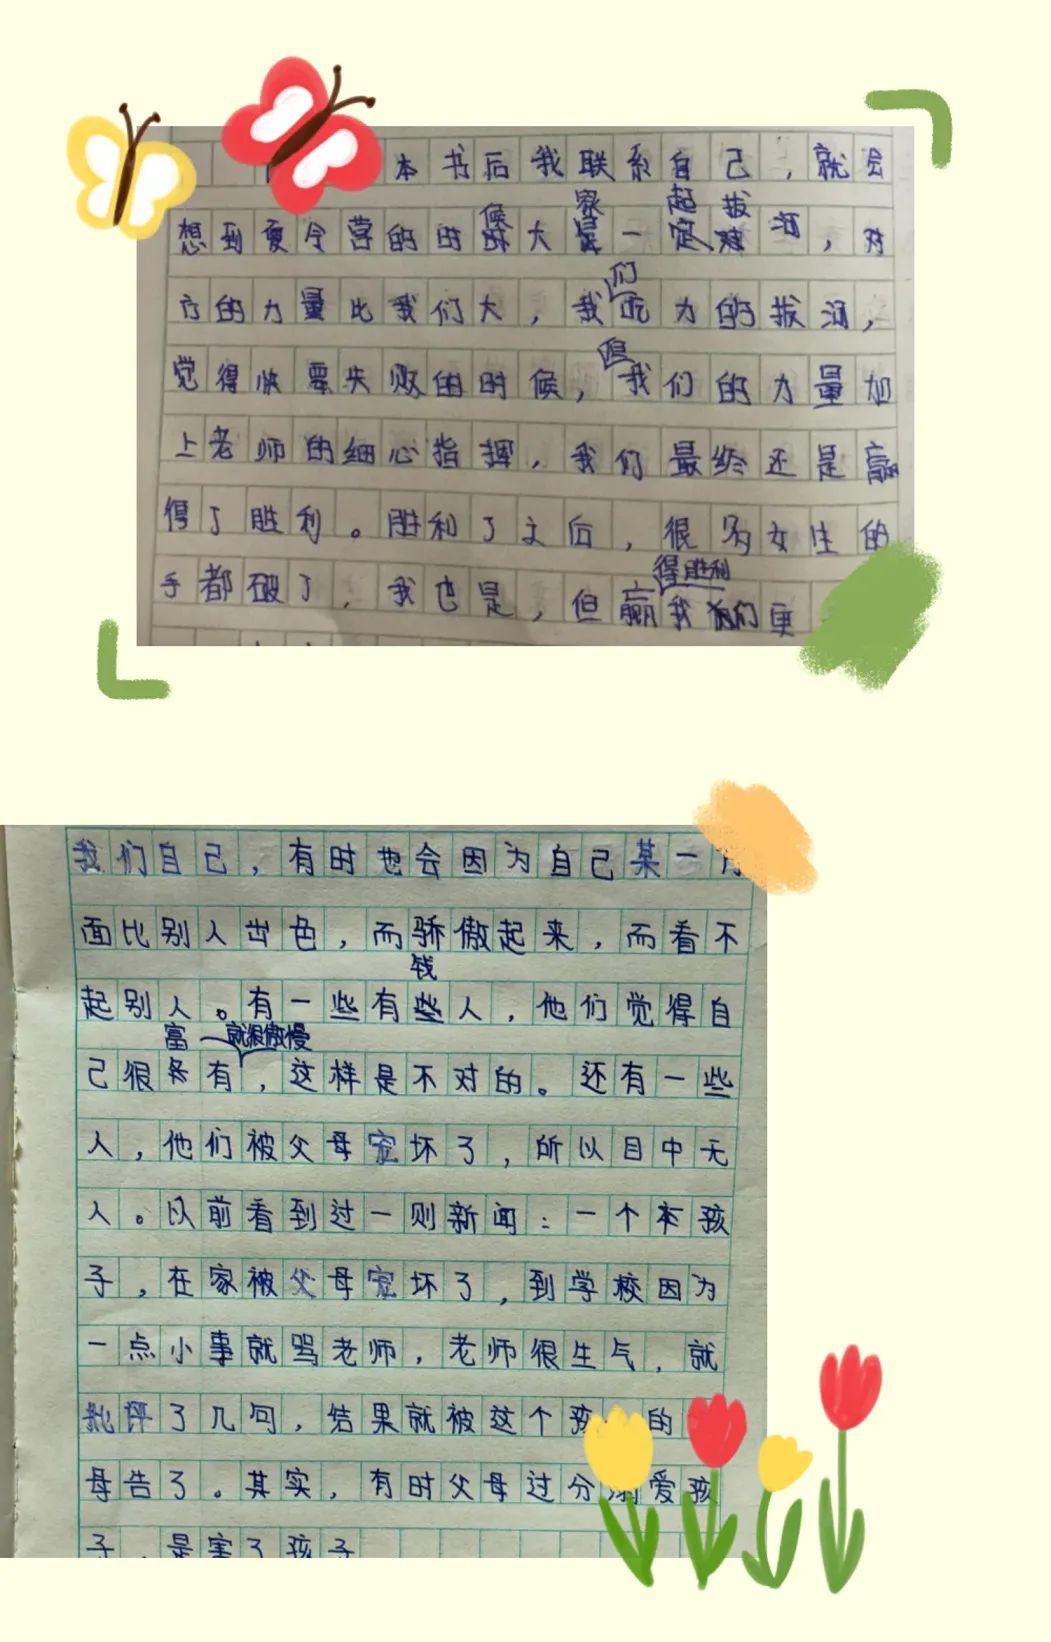 本书后我联系自己，就会
想到夏令营的的时候大家一起拔河，对
方的力量比我们大，我们吃力的拔河，
觉得快要失败的时候，但我们的力量加
上老师的细心指挥，我们最终还是赢
得了胜利。胜利了之后，很多女生的
手都破了，我也是，但赢得胜利我们更
我们自己，有时也会因为自己某一方
面比别人出色，而骄傲起来，而看不
起别人。有一些有钱人，他们觉得自
己很富有就很傲慢，这样是不对的。还有一些
人，他们被父母宠坏了，所以目中无
人。以前看到过一则新闻：一个孩
子，在家被父母宠坏了，到学校因为
一点小事就骂老师，老师很生气，就
批评了几句，结果就被这个孩的
母告了。其实，有时父母过分溺爱孩
子，是害了孩子